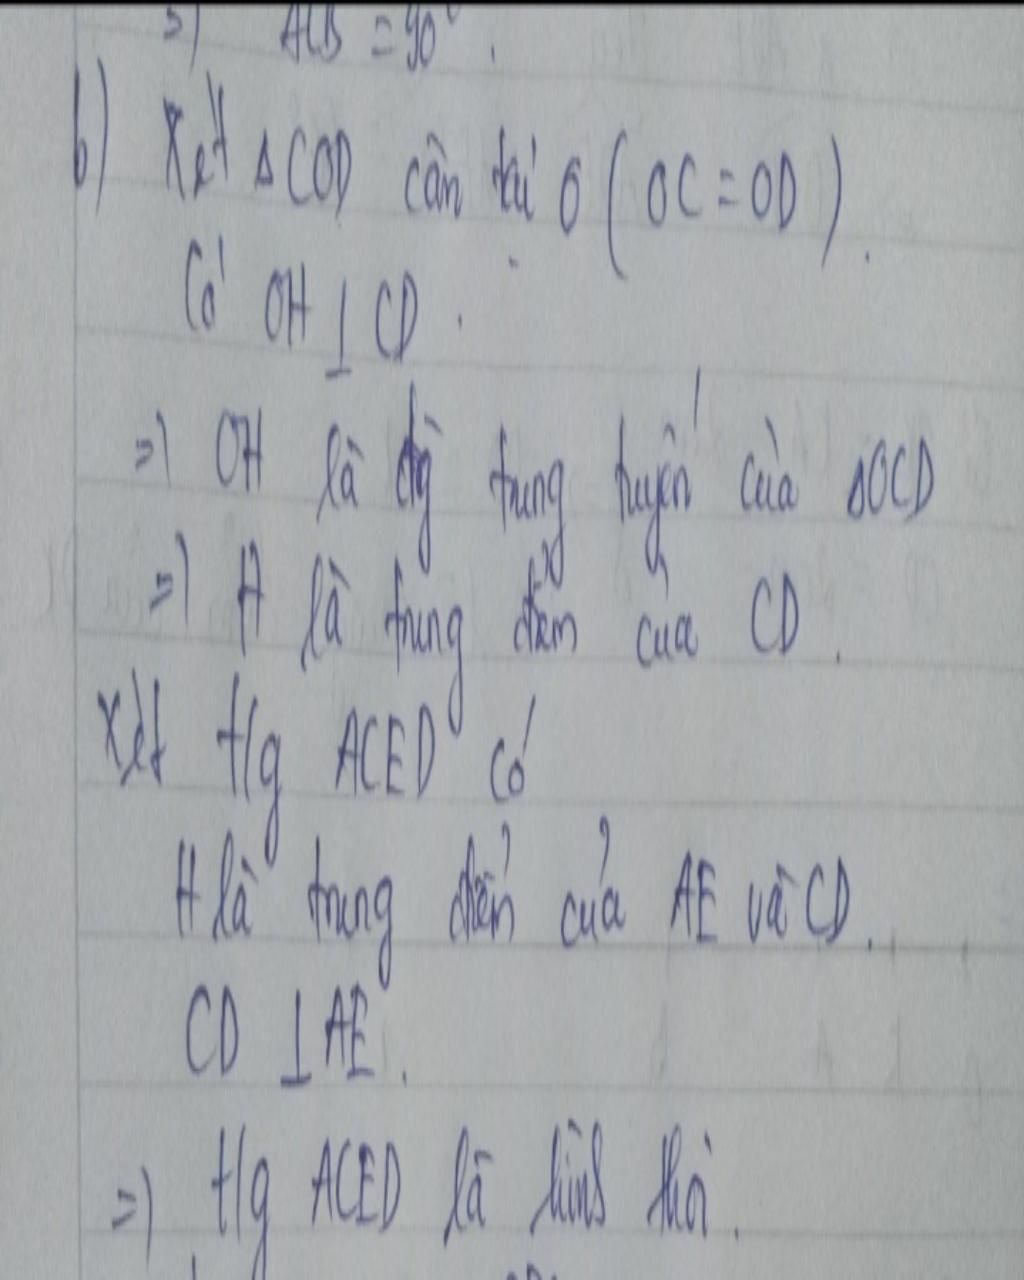 => ACB = 90°.
b) Xét ΔCOD cân tại O (OC = OD).
Có OH ⊥ CD.
=> OH là đg trung tuyến của ΔOCD
=> H là trung điểm của CD.
Xét t/g ACED có
H là trung điểm của AE và CD.
CD ⊥ AE.
=> t/g ACED là hình thoi.